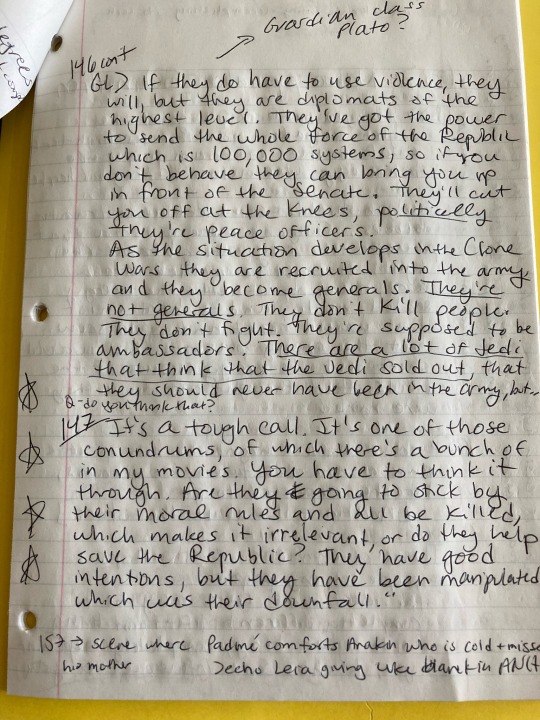 Guardian class
Plato?
146 cont
GL) If they do have to use violence, they
will, but they are diplomats of the
highest level. They've got the power
to send the whole force of the Republic
which is 100,000 systems, so if you
don't behave they can bring you up
in front of the Senate. They'll cut
you off at the knees, politically
They're peace officers.
As the situation develops in the Clone
Wars they are recruited into the army,
and they become generals. They're
not generals. They don't kill people.
They don't fight. They're supposed to be
ambassadors. There are a lot of Jedi
that think that the Jedi sold out, that
they should never have been in the army, but..
Q - do you think that?
147 It's a tough call. It's one of those
conundrums, of which there's a bunch of
in my movies. You have to think it
through. Are they going to stick by
their moral rules and all be killed,
which makes it irrelevant, or do they help
save the Republic? They have good
intentions, but they have been manipulated
which was their downfall."
157 → scene where Padmé comforts Anakin who is cold + misse
his mother
echo Leia giving Luke blanket in AN
egrees